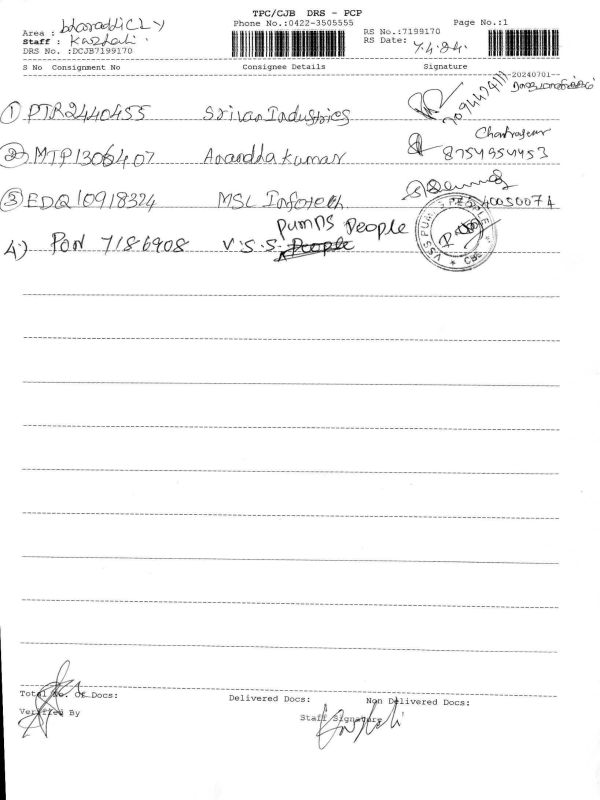 TPC/CJB DRS - PCP
Phone No.:0422-3505555
Page No.:1
Area :
Staff :
DRS No. :DCJB7199170
RS No.:7199170
RS Date: 7.4.24.
S No Consignment No Consignee Details Signature
-20240701--
① PTR2440455 Srivan Industries
② MTP1306407 Anandha kumar 8754954453
③ EDQ10918324 MSL Infotech
Pumps People
4) PON 7186908 V.S.S. People
VSS PUMPS PEOPLE
Total No. Of Docs: Delivered Docs: Non Delivered Docs:
Verified By Staff Signature